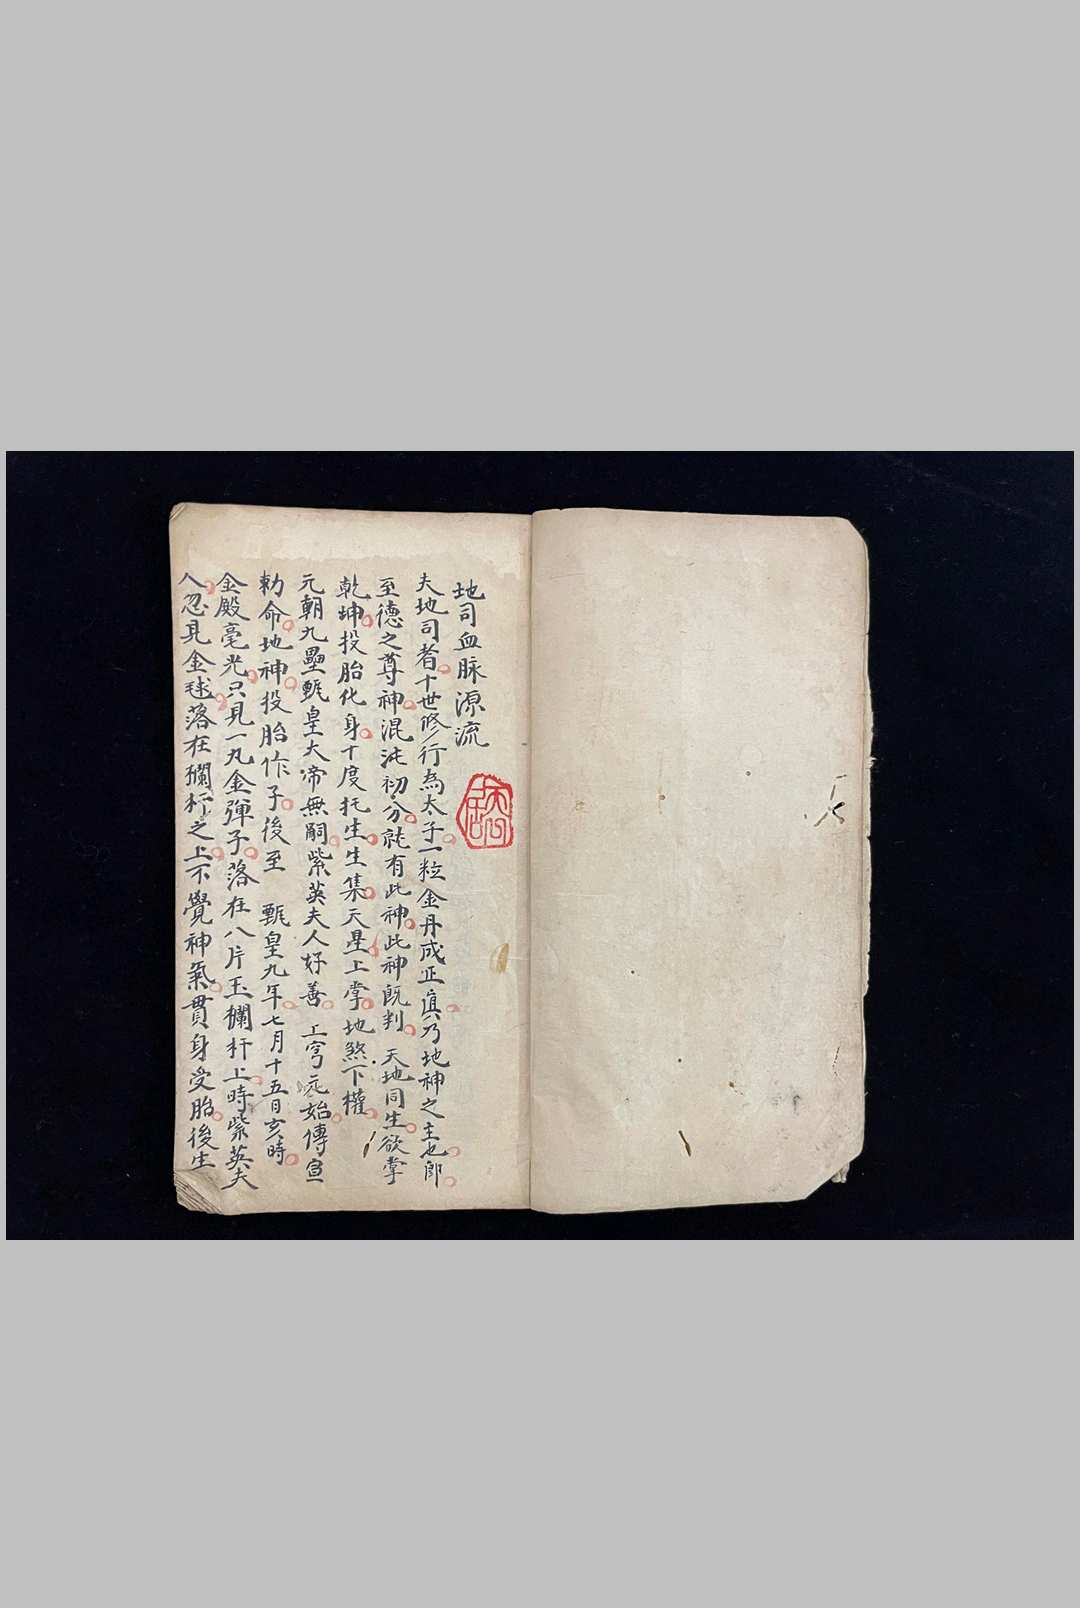 地司血脉源流
夫地司者十世修行為太子一粒金丹成正真乃地神之主也郎
至德之尊神混沌初分就有此神此神既判 天地同生欲掌
乾坤投胎化身十度托生生集天星上掌地煞下權
元朝九壘甄皇大帝無嗣紫英夫人好善 上穹元始傳宣
勅命地神投胎作子後至 甄皇九年七月十五日亥時
金殿毫光只見一丸金彈子落在八片玉欄杆上時紫英夫
人忽見金球落在欄杆之上不覺神氣貫身受胎後生